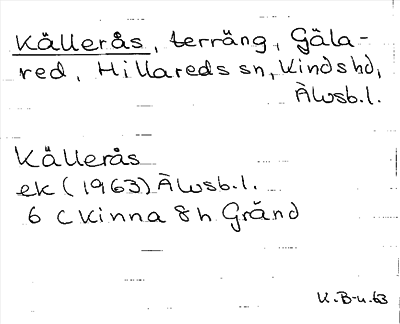 Källerås, terräng, Gäla-
red, Hillareds sn, Kinds hd,
Älvsb.l.
Källerås
ek (1963) Älvsb.l.
6 C Kinna 8 h Gränd
K.B-n.63